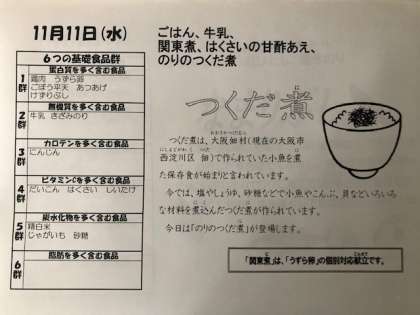 11月11日(水)
6つの基礎食品群
1群
蛋白質を多く含む食品
鶏肉 うずら卵
ごぼう平天 あつあげ
けずりぶし
2群
無機質を多く含む食品
牛乳 きざみのり
3群
カロテンを多く含む食品
にんじん
4群
ビタミンCを多く含む食品
だいこん はくさい しいたけ
5群
炭水化物を多く含む食品
精白米
じゃがいも 砂糖
6群
脂肪を多く含む食品
ごはん、牛乳、
関東煮、はくさいの甘酢あえ、
のりのつくだ煮
つくだ煮
つくだ煮は、大阪佃村(現在の大阪市
西淀川区 佃)で作られていた小魚を煮
た保存食が始まりと言われています。
今では、塩やしょうゆ、砂糖などで小魚やこんぶ、貝などいろいろ
な材料を煮込んだつくだ煮が作られています。
今日は「のりのつくだ煮」が登場します。
「関東煮」は、「うずら卵」の個別対応献立です。